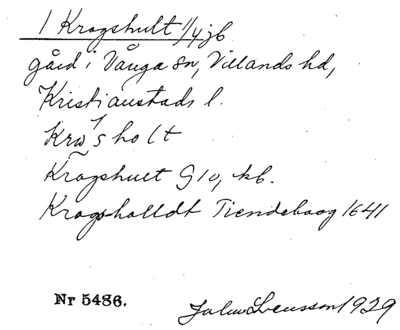 1 Kragshult 1/4 jb
gård i Vånga sn, Villands hd,
Kristianstads l.
Kraghult G10, kb.
Kragholldt Tiendebog 1641
Nr 5486.
John Svensson 1929